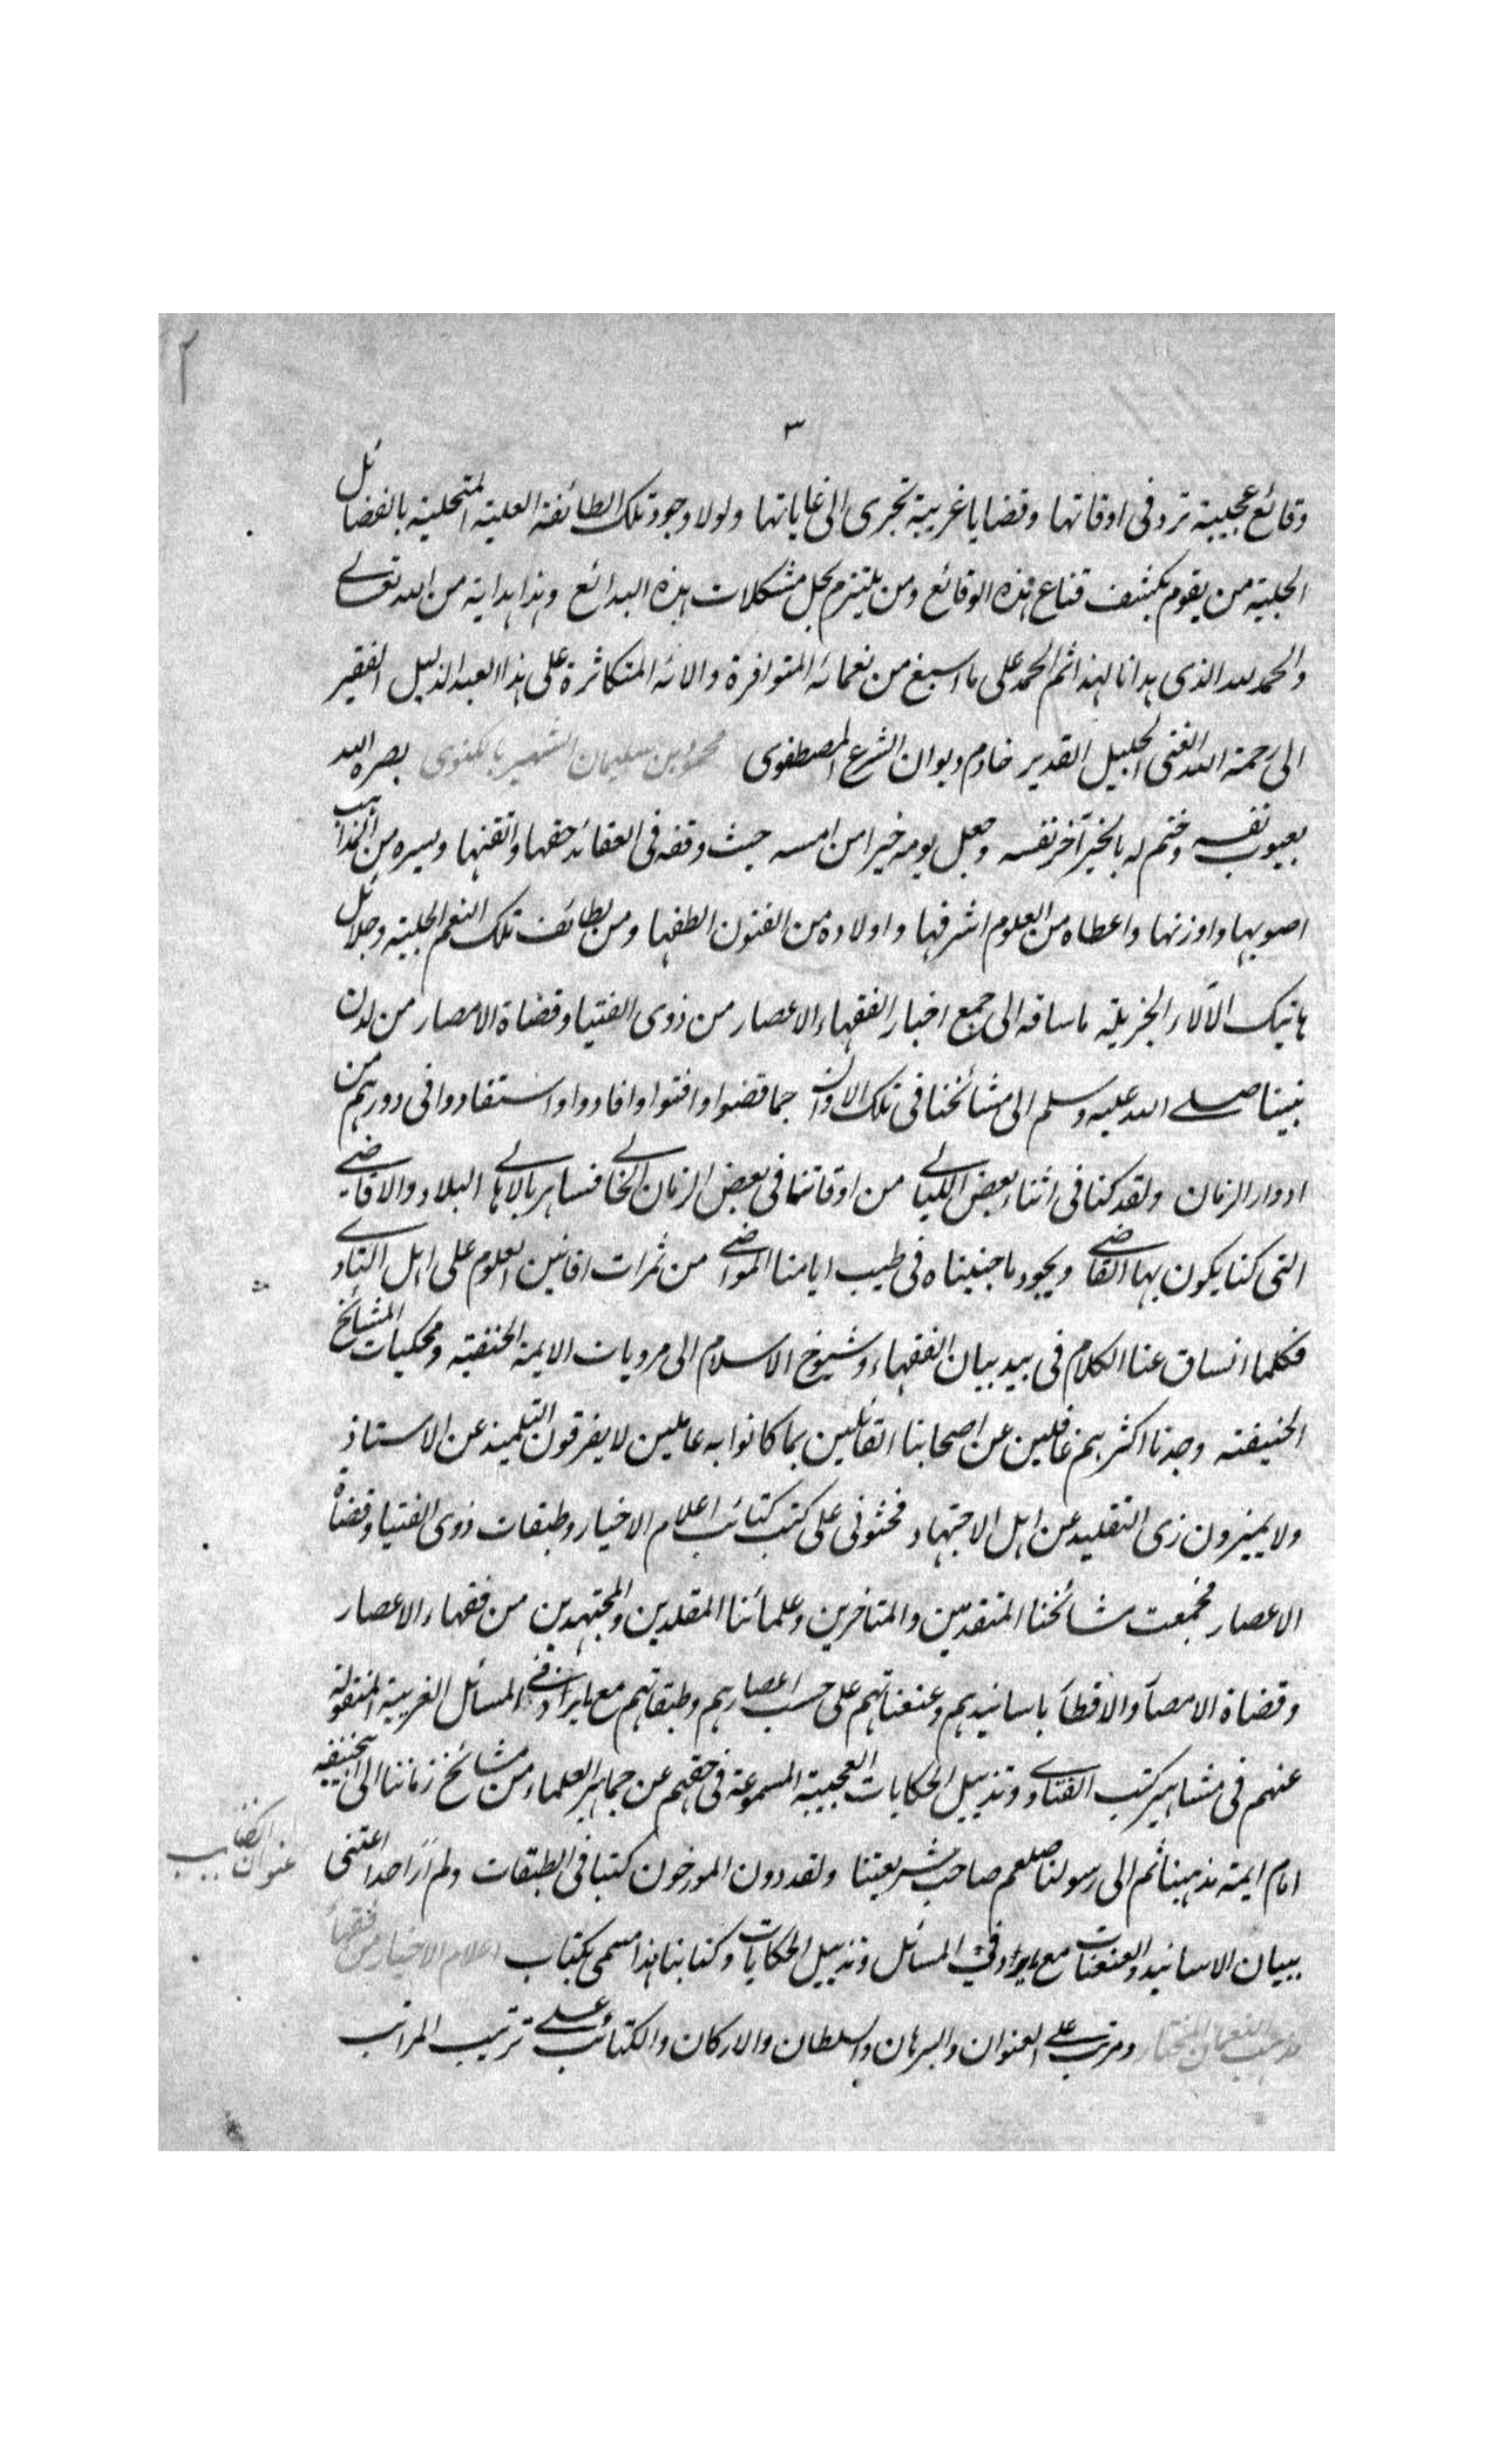 ٢
٣
وقائع عجيبة ترد فى اوقاتها وقضايا غريبة تجرى الى غاياتها ولولا وجود تلك الطائفة العلية المتحلية بالفضائل
الجلية من يقوم بكشف قناع هذه الوقائع ومن يلتزم بحل مشكلات هذه البدائع وهذا هداية من الله تعالى
والحمد لله الذى هدانا لهذا ثم الحمد على ما اسبغ من نعمائه المتوافرة والائه المتكاثرة على هذا العبد الذليل الفقير
الى رحمة الله الغنى الجليل القدير خادم ديوان الشرع المصطفوى محمود بن سليمان الشهير بالكفوى بصره الله
بعيوب نفسه وختم له بالخير آخر نفسه وجعل يومه خيرا من امسه حيث وقفه فى العقائد حقها واتقنها ويسره من المذاهب
اصوبها واوزنها واعطاه من العلوم اشرفها واولاده من الفنون الطفها ومن لطائف تلك النعم الجلية وجلائل
هاتيك الآلاء الجزيلة ما ساقه الى جمع اخبار الفقهاء الاعصار من ذوى الفتيا وقضاة الامصار من لدن
نبينا صلى الله عليه وسلم الى مشائخنا فى تلك الاوان حما قضوا وافتوا وافادوا واستفادوا فى دورهم من
ادوار الزمان ولقد كنا فى اثناء بعض الليالى من اوقاتنا فى بعض الزمان الخالى فنساهر بالاهالى البلاد والاقاضى
التى كنا يكون بها القاضى ويجود ما جنيناه فى طيب ايامنا المواضى من ثمرات افانين العلوم على اهل النادى
فكلما انساق عنا الكلام فى بيد بيان الفقهاء وشيوخ الاسلام الى مرويات الايمة الحنفية ومحكيات المشائخ
الحنيفته وجدنا اكثرهم غافلين عن اصحابنا القائلين بما كانوا به عاملين لا يفرقون التلميذ عن الاستاذ
ولا يميزون زى التقليد عن اهل الاجتهاد فحثونى على كتب كتائب اعلام الاخيار وطبقات ذوى الفتيا وقضاة
الاعصار فجمعت مشائخنا المتقدمين والمتاخرين وعلمائنا المقلدين والمجتهدين من فقهاء الاعصار
وقضاة الامصار والاقطار باسانيدهم وعنعناتهم على حسب اعصارهم وطبقاتهم مع ايراد فى المسائل الغريبة المنقولة
عنهم فى مشاهير كتب الفتاوى وتذييل الحكايات العجيبة المسموعة فى حقهم عن جماهير العلماء من مشائخ زماننا الى ابى حنيفه
امام ايمة مذهبنا ثم الى رسولنا صلعم صاحب شريعتنا ولقد دون المورخون كتبا فى الطبقات ولم أر احدا اعتنى
عنوان الكتاب
ببيان الاسانيد والعنعنات مع ايراد فى المسائل وتذييل الحكايات وكتابنا هذا مسمى بكتاب اعلام الاخيار من فقهاء
مذهب النعمان المختار ومرتب على العنوان والبرهان والسلطان والاركان والكتائب على ترتيب المراتب